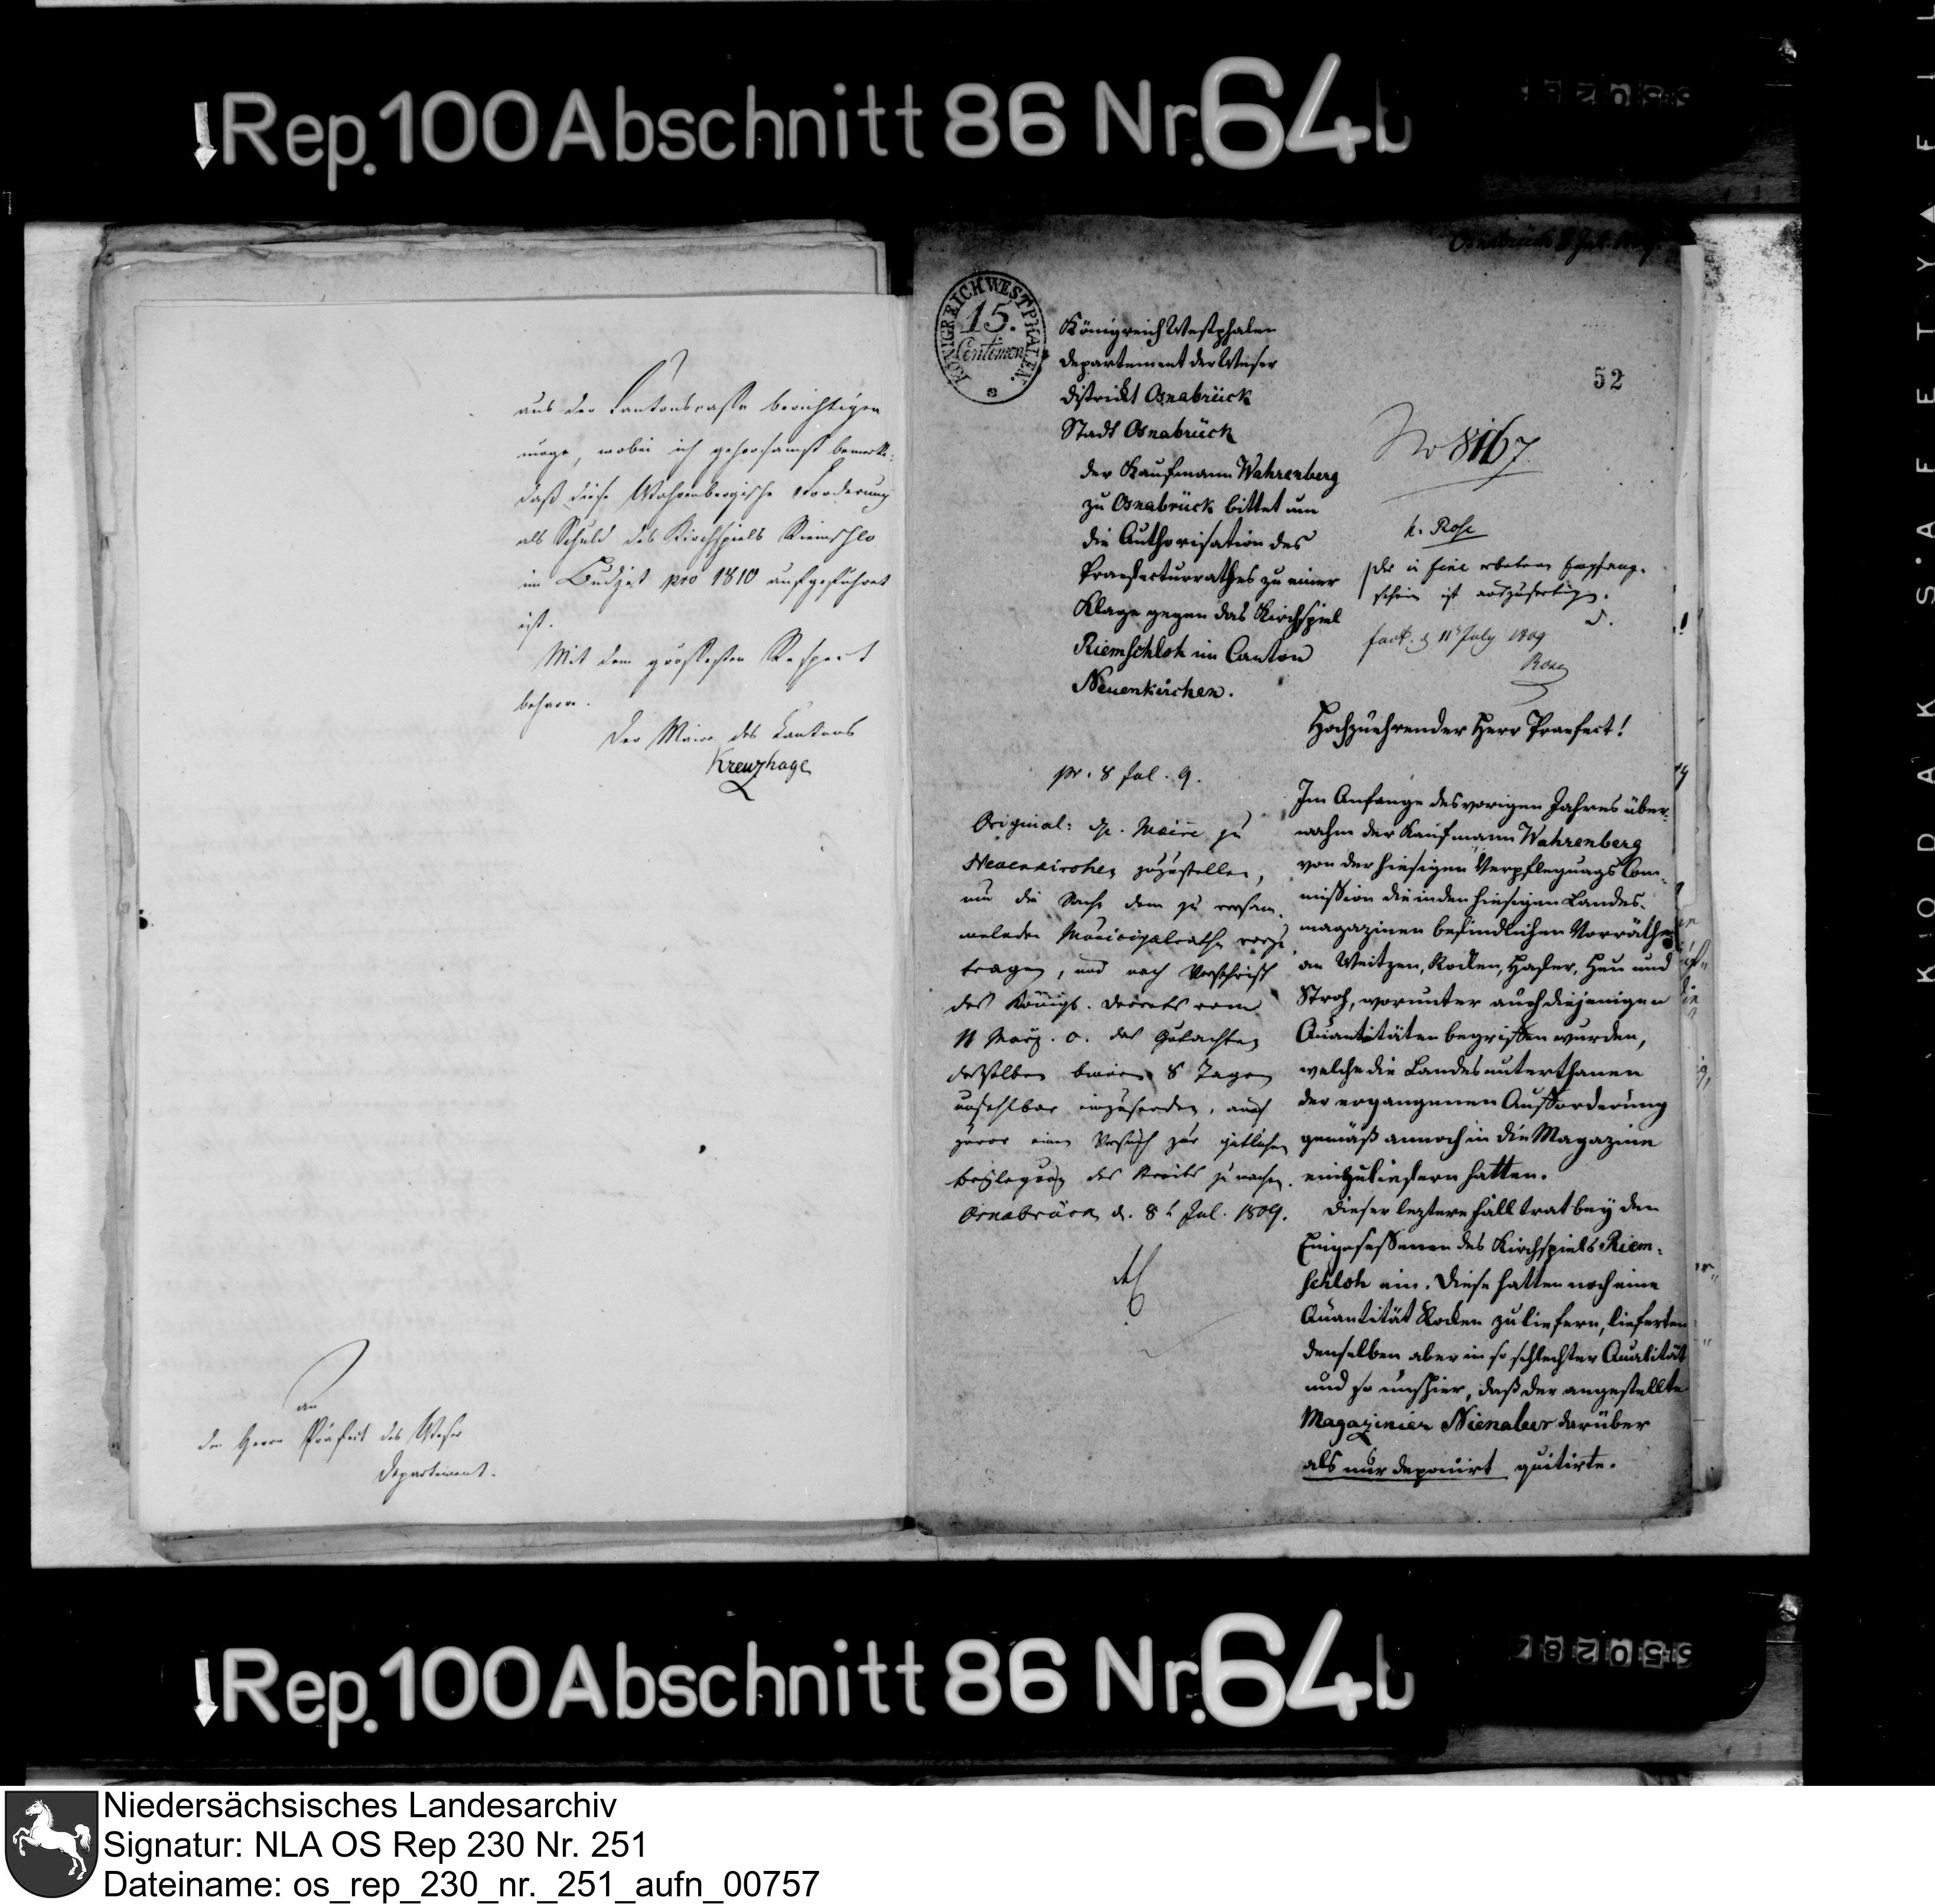 Rep. 100 Abschnitt 86 Nr. 64b
aus der Cantonscasse berichtigen
möge, wobei ich gehorsamst bemerke:
daß diese Wahrenbergische Forderung
als Schuld des Kirchspiels Riemschlo
im Budjet pro 1810 aufgeführet
ist.
Mit dem größesten Respect
beharre.
Der Maire des Cantons
Kreuzhage
an
den Herrn Präfect des Weser
Departement.
Osnabrück 8 Jul. 1809
KÖNIGREICH WESTPHALEN.
15.
Centimen
52
Königreich Westphalen
Departement der Weser
District Osnabrück
Stadt Osnabrück
der Kaufmann Wahrenberg
zu Osnabrück bittet um
die Authorisation des
Praefecturrathes zu einer
Klage gegen das Kirchspiel
Riemschloh im Canton
Neuenkirchen.
No 8167
h. Rose
Der in fine erbetene Empfang-
schein ist auszufertigen.
fact. d 11t July 1809
Rose
pr. 8 Jul. 9.
Original: Maire zu
Neuenkirchen zuzustellen,
um die Sache dem zu versam-
melnden Municipalrathe vorzu
tragen, und nach Vorschrift
des Königl. Decrets vom
11 März. c. das Gutachten
desselben binnen 8 Tagen
unfehlbar einzusenden, auch
zuvor einen Versuch zur gütlichen
Beylegung des Streits zu machen.
Osnabrück d. 8t Jul. 1809.
Hochzuehrender Herr Praefect!
Im Anfange des vorigen Jahres über-
nahm der Kaufmann Wahrenberg
von der hiesigen Verpflegungs Com-
mission die in den hiesigen Landes-
magazinen befindlichen Vorräthe
an Weitzen, Rocken, Hafer, Heu und
Stroh, worunter auch diejenigen
Quantitäten begriffen wurden,
welche die Landesunterthanen
der ergangenen Aufforderung
gemäß annoch in die Magazine
einzuliefern hatten.
Dieser leztere Fall trat bey den
Eingesessenen des Kirchspiels Riem-
schloh ein. Diese hatten noch eine
Quantität Rocken zu liefern, lieferten
denselben aber in so schlechter Qualität
und so unrein, daß der angestellte
Magazinier Nienaber darüber
als nur deponirt quitirte.
Rep. 100 Abschnitt 86 Nr. 64b
Niedersächsisches Landesarchiv
Signatur: NLA OS Rep 230 Nr. 251
Dateiname: os_rep_230_nr._251_aufn_00757
KODAK SAFETY FIL